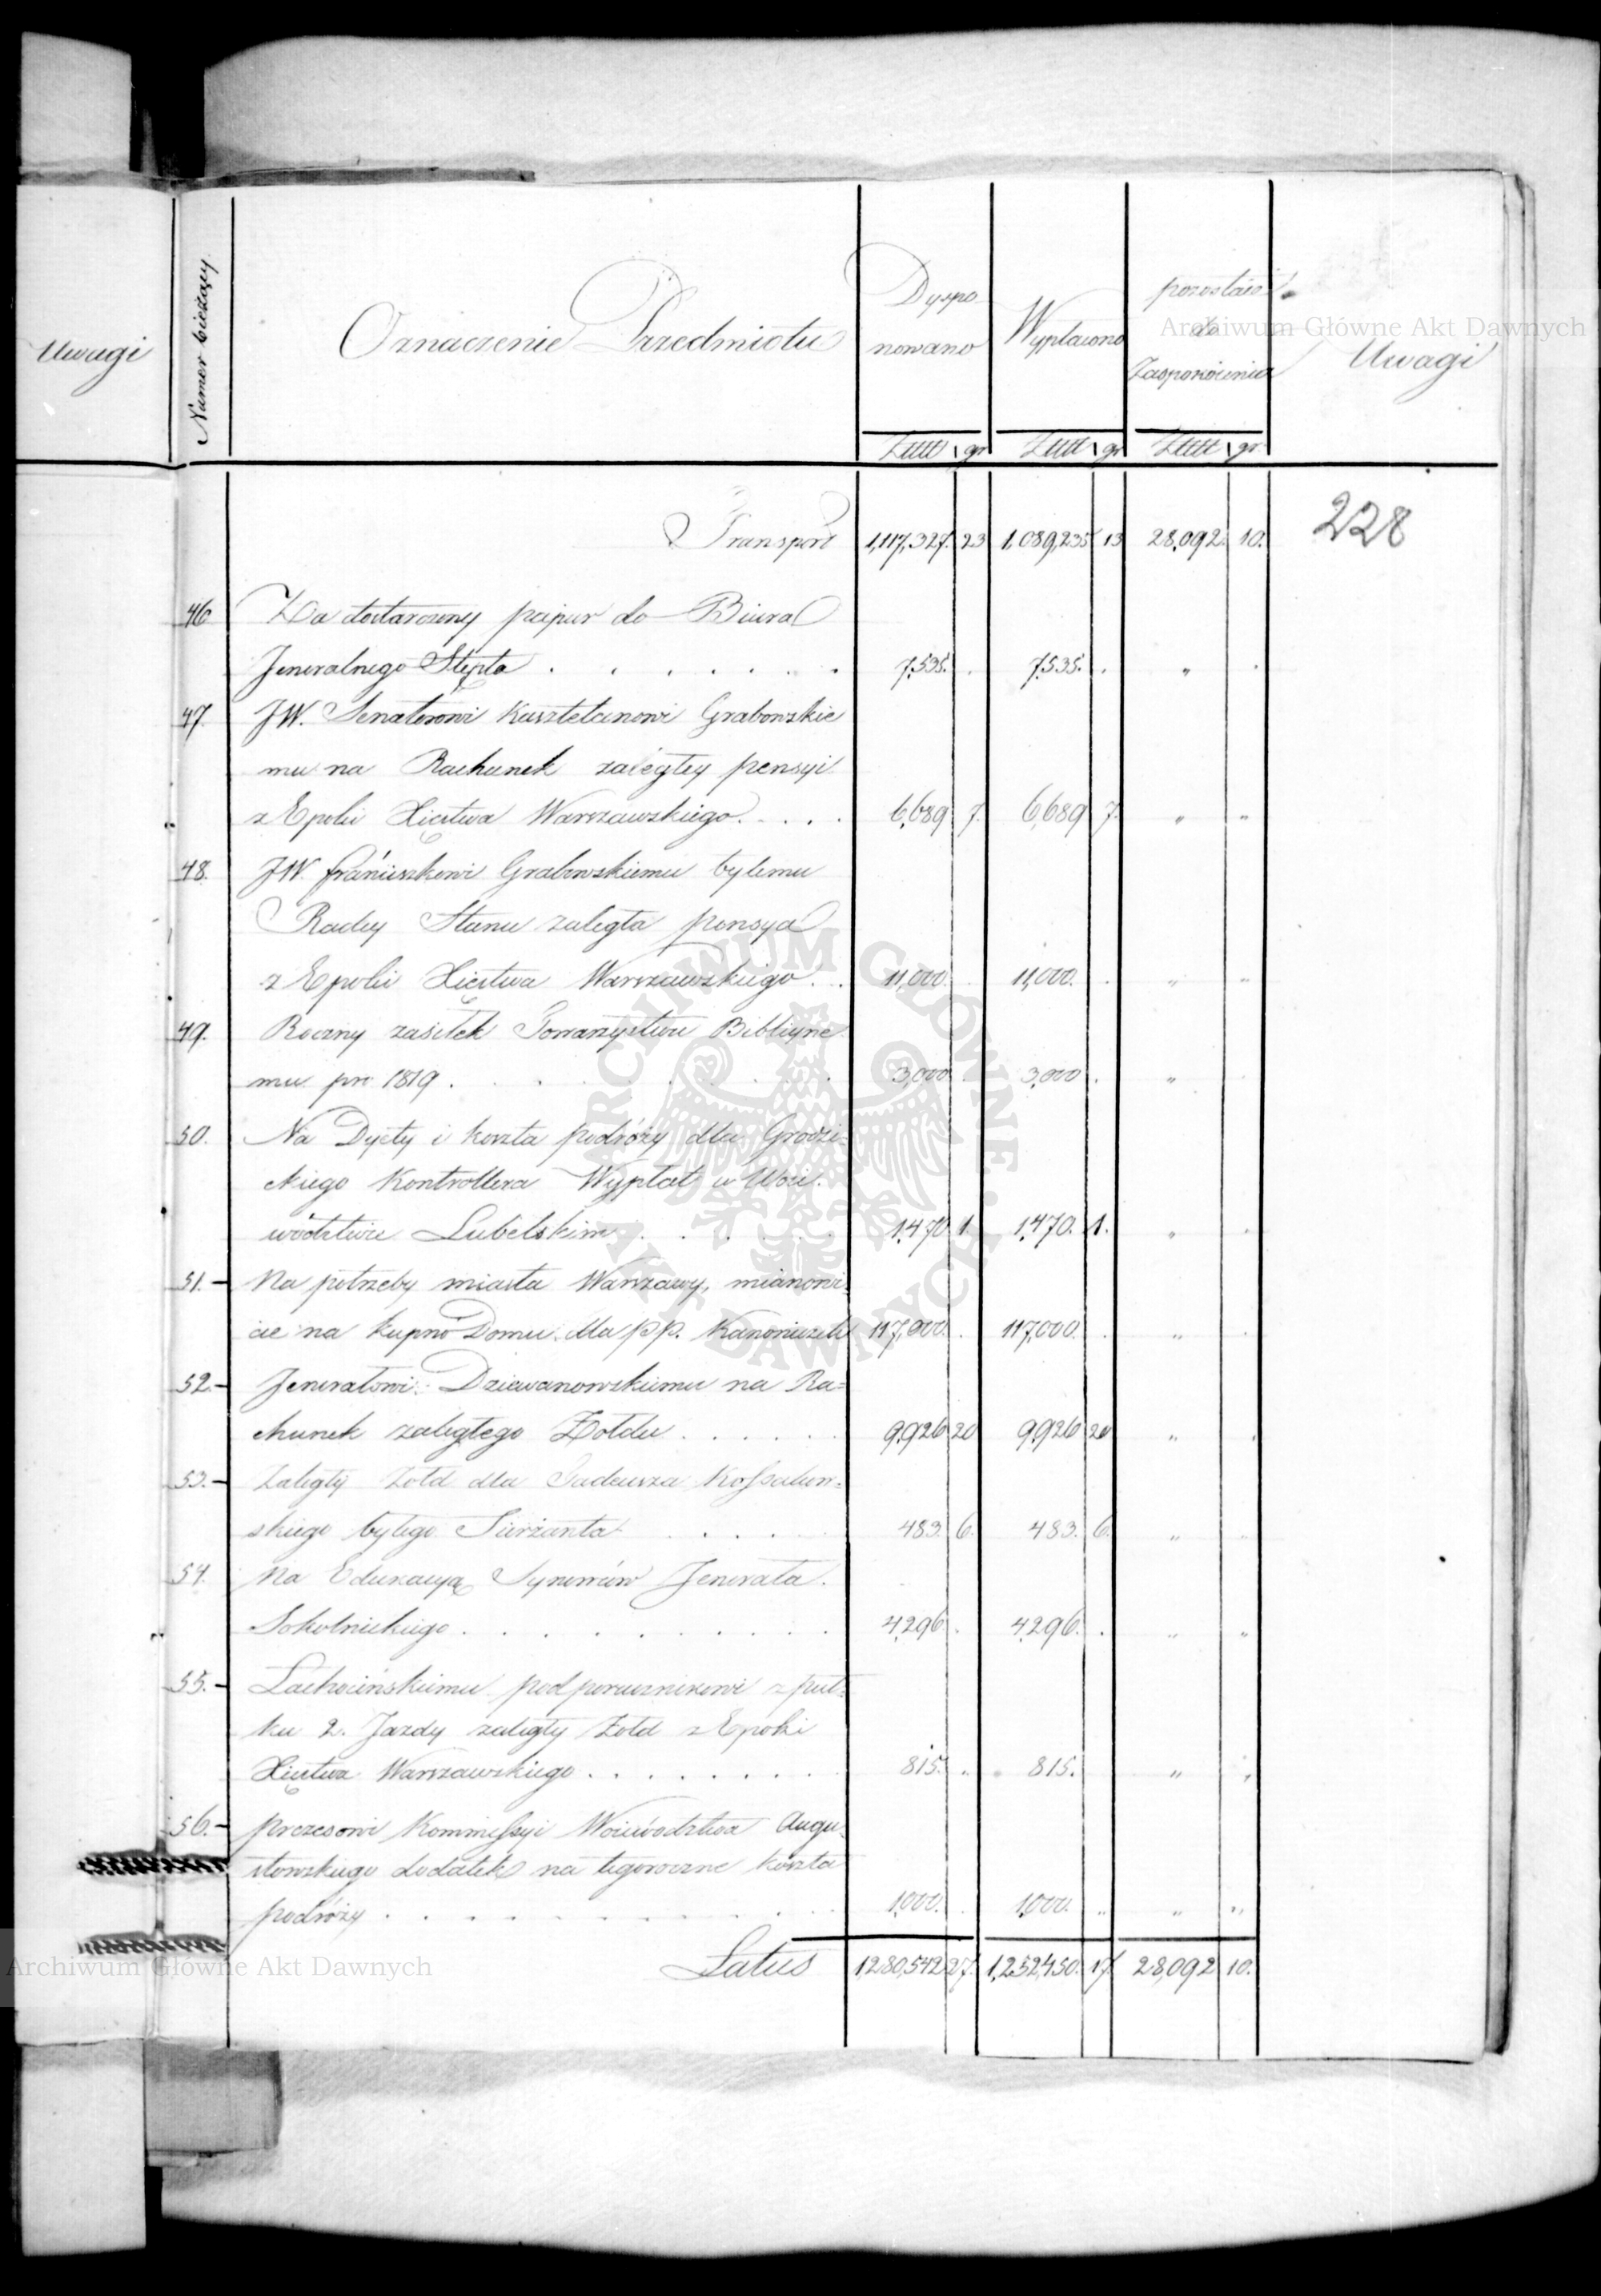 Uwagi
Numer bieżący
Oznaczenie Przedmiotu
Dyspo
nowano
Wypłacono
pozostaie
do
Zaspokoienia
Uwagi
Złłł gr Złłł gr Złłł gr
Transport 1,117,327. 23 1,089,235 13 28,092. 10.
228
46 Za dostarczony papier do Biura
Jeneralnego Stępla . . . . . . . 7,535. . 7,535. . " .
47. JW. Senatorowi Kasztelanowi Grabowskie
mu na Rachunek zaległey pensyi
z Epoki Xięstwa Warszawskiego. . . . 6,689 7. 6,689 7. " "
48. JW. Franciszkowi Grabowskiemu byłemu
Radcy Stanu zaległa pensya
z Epoki Xięstwa Warszawskiego . . 11,000. . 11,000. . " "
49. Roczny zasiłek Towarzystwu Bibliyne
mu pro 1819 . . . . . . . . 3,000 . 3,000 . " .
50. Na Dyety i koszta podróży dla Grodzi-
ckiego Kontrollera Wypłat w Woie.
wództwie Lubelskim . . . . . 1,470 1. 1,470. 1. " .
51. - Na potrzeby miasta Warszawy, mianowi-
cie na kupno Domu dla pp. Kanoniczek 117,000. . 117,000. . " .
52. - Jenerałowi Dziewanowskiemu na Ra=
chunek zaległego Żołdu . . . . . . 9,926 20 9,926 20 " .
53. - Zaległy żołd dla Tadeusza Kossakow-
skiego byłego Sierżanta . . . . 483. 6. 483. 6. " .
54. Na Edukacyą Synowców Jenerała
Sokolnickiego . . . . . . . . . 4,296 . 4,296. . " "
55. - Lachocińskiemu podporucznikowi z puł-
ku 2. Jazdy zaległy żołd z Epoki
Xięstwa Warszawskiego . . . . . . . 815. . 815. " .
56. - Prezesowi Kommissyi Woiewództwa Augu-
stowskiego dodatek na tegoroczne koszta
podróży . . . . . . . . . . . 1,000. . 1,000. " " "
Latus 1280,542 27. 1,252,450. 17. 28,092 10.
Archiwum Główne Akt Dawnych
ARCHIWUM GŁÓWNE AKT DAWNYCH
Archiwum Główne Akt Dawnych